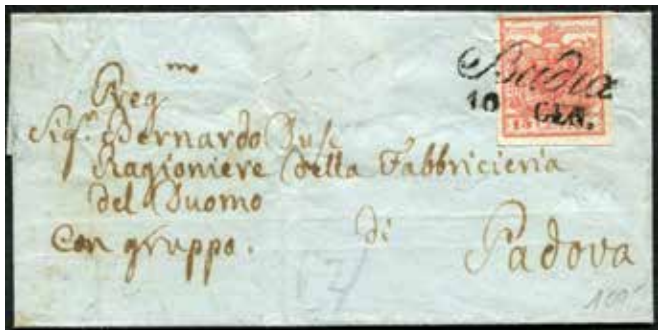 Badia
10 GEN.
Preg.mo
Sig.r Bernardo
Ragioniere della Fabbricieria
del Duomo
Con gruppo. di Padova
100